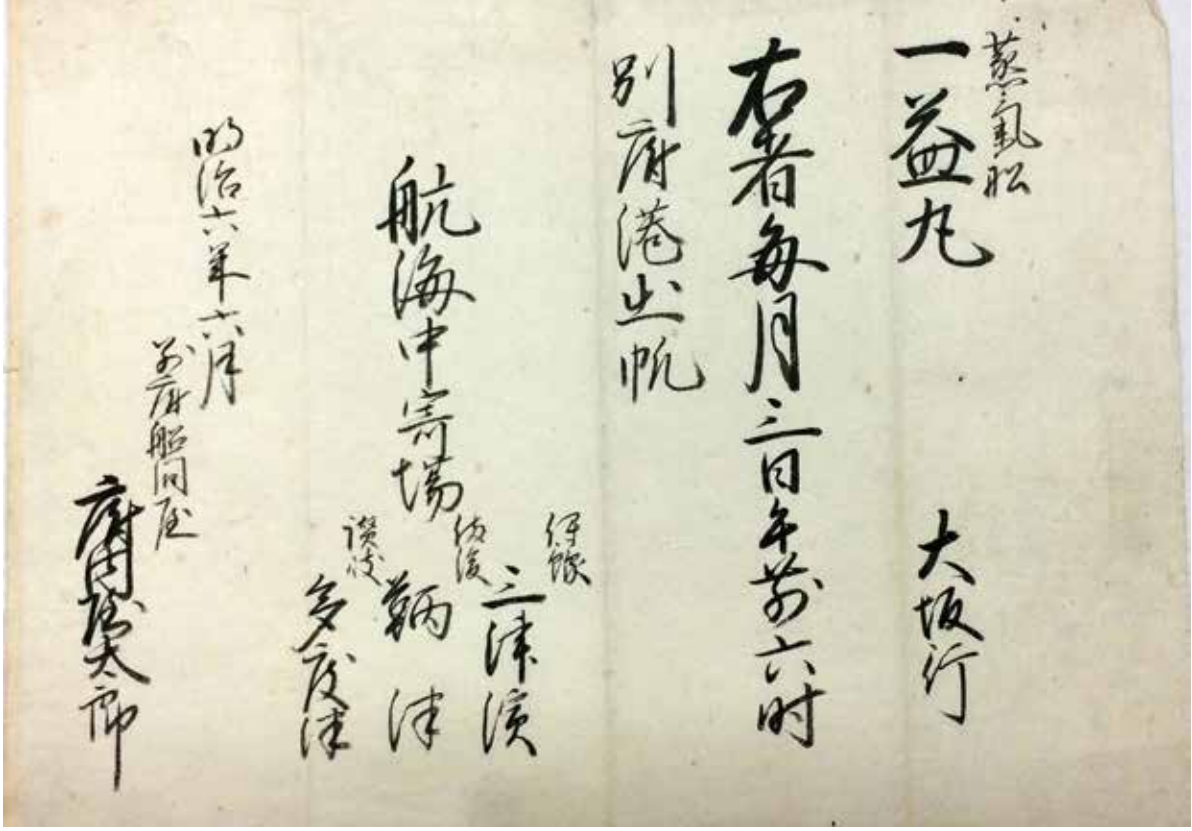 蒸氣船
一益丸 大坂行
右者毎月三日午前六时
别府港出帆
航海中寄場
伊豫
三津濱
備後
鞆津
讃岐
多度津
明治六年六月
別府船問屋
太郎